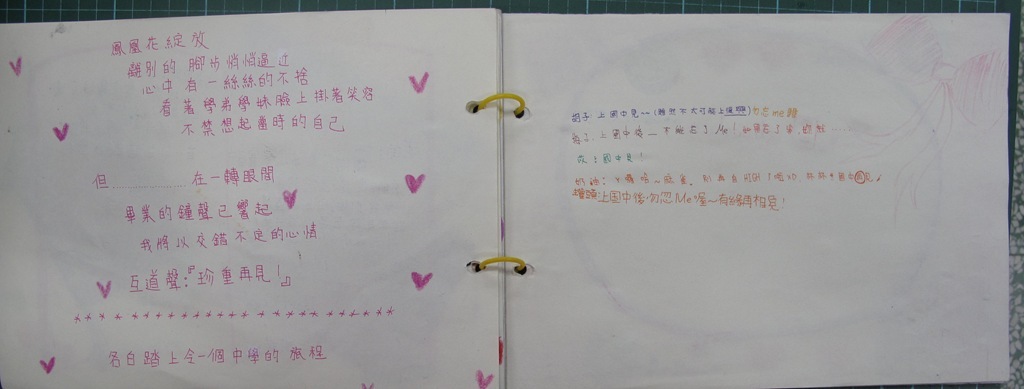 鳳凰花綻放
離別的腳步悄悄逼近
心中有一絲絲的不捨
看著學弟學妹臉上掛著笑容
不禁想起當時的自己
但……………在一轉眼間
畢業的鐘聲已響起
我將以交錯不定的心情
互道聲:『珍重再見!』
********************
各自踏上令一個中學的旅程
胡子:上國中見~~(雖然不太可能上)勿忘me體
上國中後 不能忘了Me!如果忘了
:國中見!
奶油:
上国中後勿忽Me喔~有緣再相見!